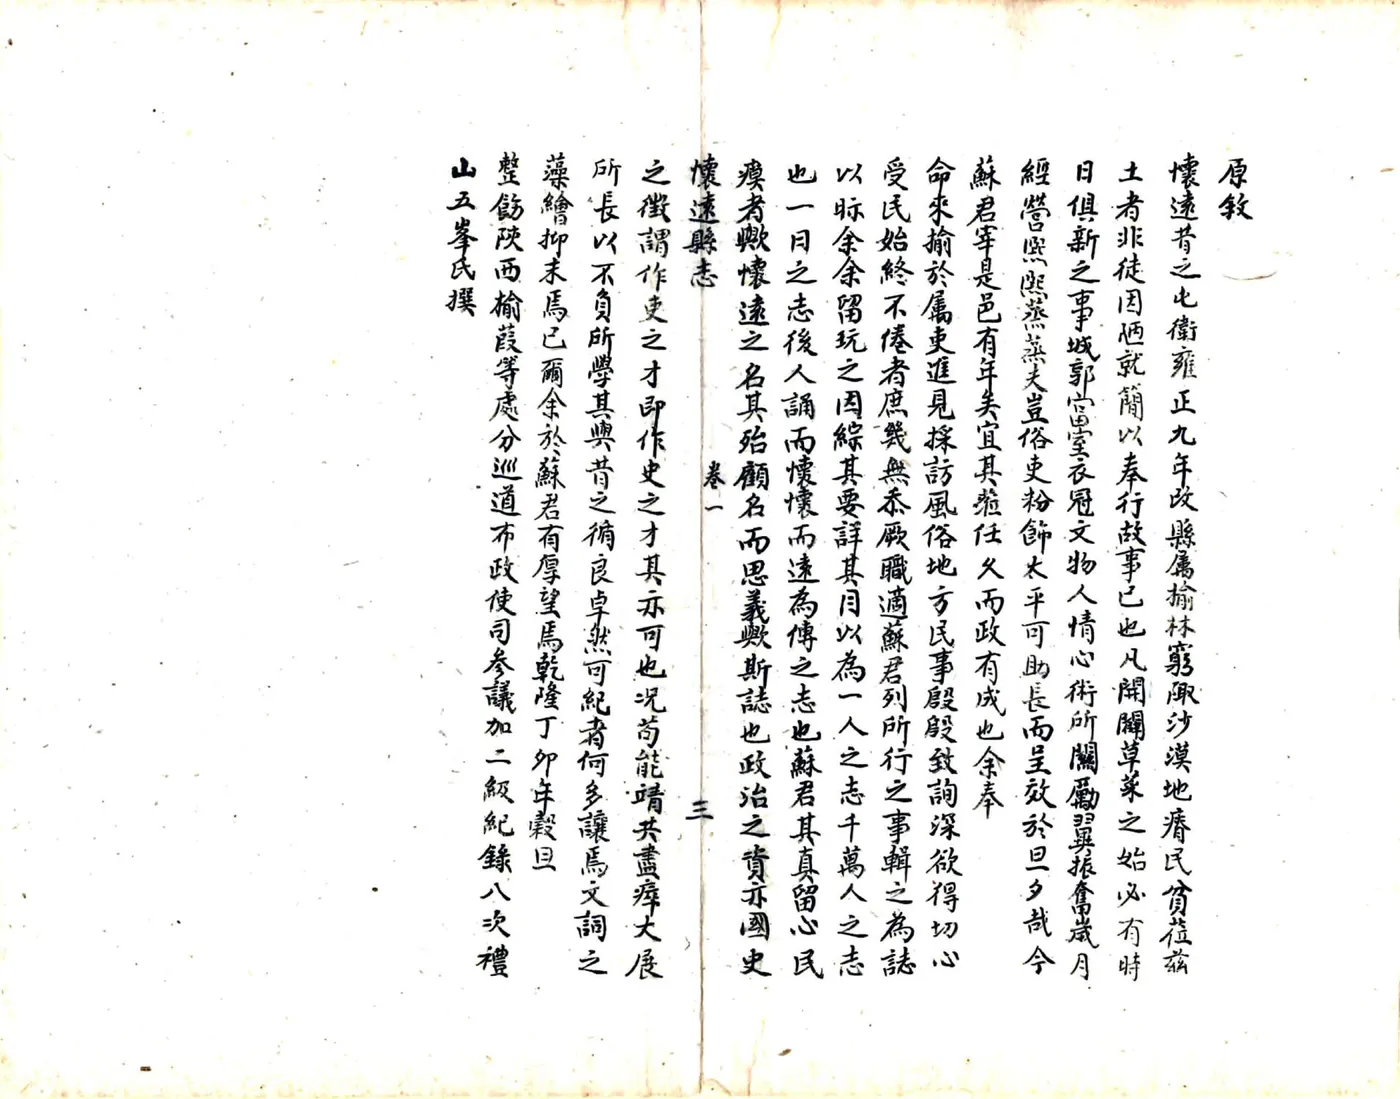 原敘
懷遠昔之屯衛雍正九年改縣属榆林窮陬沙漠地瘠民貧莅茲
土者非徒因陋就簡以奉行故事已也凡開闢草萊之始必有時
日俱新之事城郭富室衣冠文物人情心術所關勵翼振奮歲月
經營熙熙蒸蒸夫豈俗吏粉飾太平可助長而呈效於旦夕哉今
蘇君宰是邑有年矣宜其蒞任久而政有成也余奉
命來揄於属吏進見採訪風俗地方民事殷殷致詢深欲得切心
受民始終不倦者庶幾無忝厥職適蘇君列所行之事輯之為誌
以眎余余留玩之因綜其要詳其目以為一人之志千萬人之志
也一日之志後人誦而懷懷而遠為傳之志也蘇君其真留心民
瘼者歟懷遠之名其殆顧名而思義歟斯誌也政治之資亦國史
懷遠縣志
卷一
三
之徵謂作吏之才即作史之才其亦可也况苟能靖共盡瘁大展
所長以不負所學其與昔之循良卓然可紀者何多讓焉文詞之
藻繪抑末焉已爾余於蘇君有厚望焉乾隆丁卯年穀旦
整飭陝西榆葭等處分巡道布政使司參議加二級紀錄八次禮
山五峯氏撰